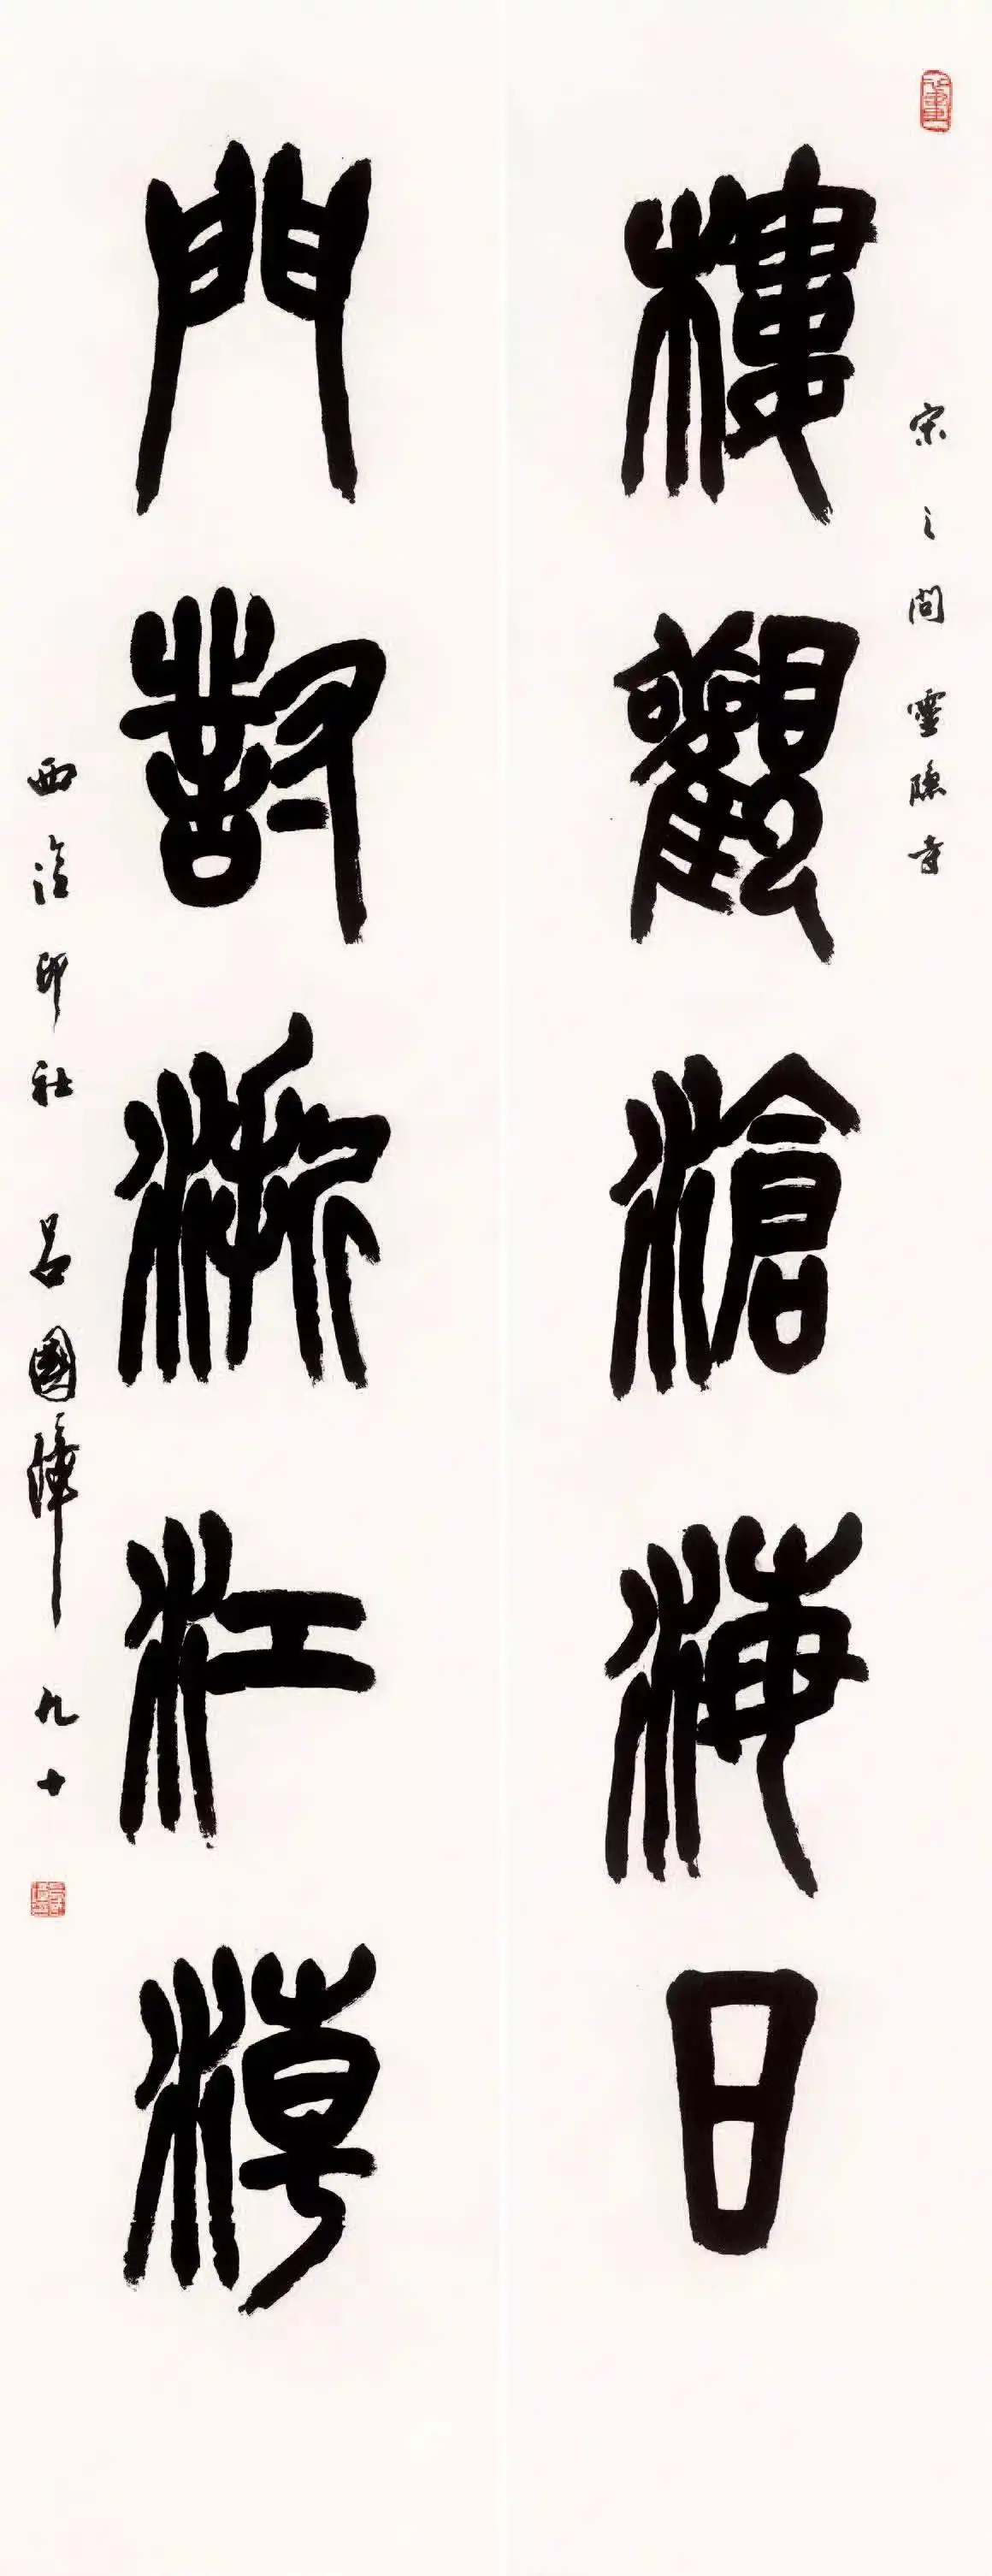 宋之問靈隱寺
樓觀滄海日
門對浙江潮
西泠印社呂國璋九十